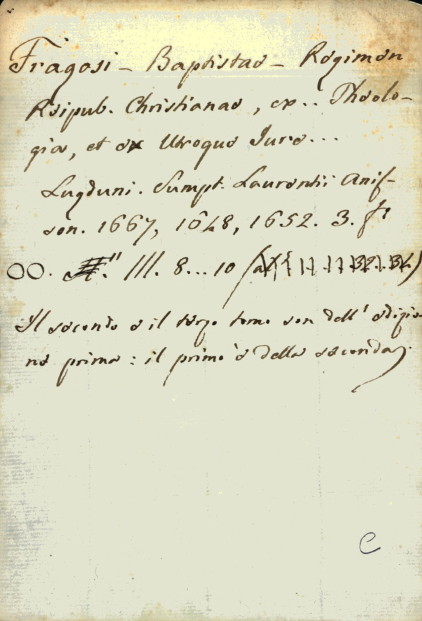 Fragosi - Baptistae - Regimen
Reipub. Christianae, ex.. Theolo-
gia, et ex Utroque Jure...
Lugduni. Sumpt. Laurentii Anis-
son. 1667, 1648, 1652. 3. f°
OO. III. 8... 10
Il secondo e il terzo tomo son dell' edizio
ne prima: il primo è della seconda.
C